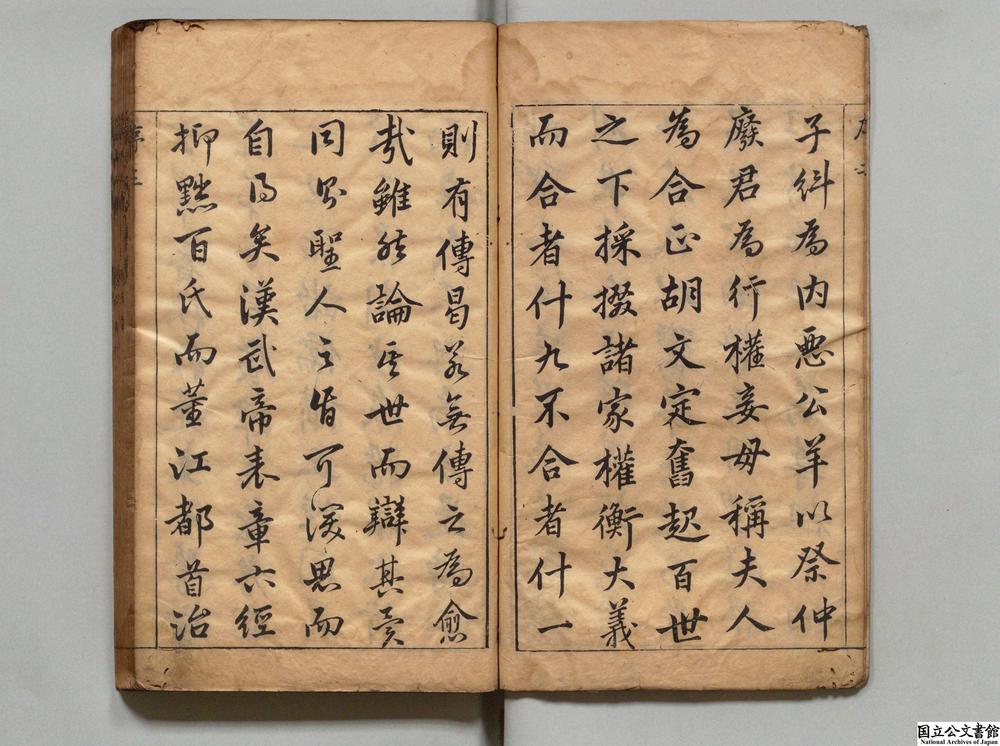 子糾為内惡公羊以祭仲
廢君為行權妾母稱夫人
為合正胡文定奮起百世
之下採掇諸家權衡大義
而合者什九不合者什一
則有傳曷若無傳之為愈
哉雖然論其世而辯其異
同聖人之旨可深思而
自得矣漢武帝表章六經
抑黜百氏而董江都首治
序三
国立公文書館
National Archives of Japan